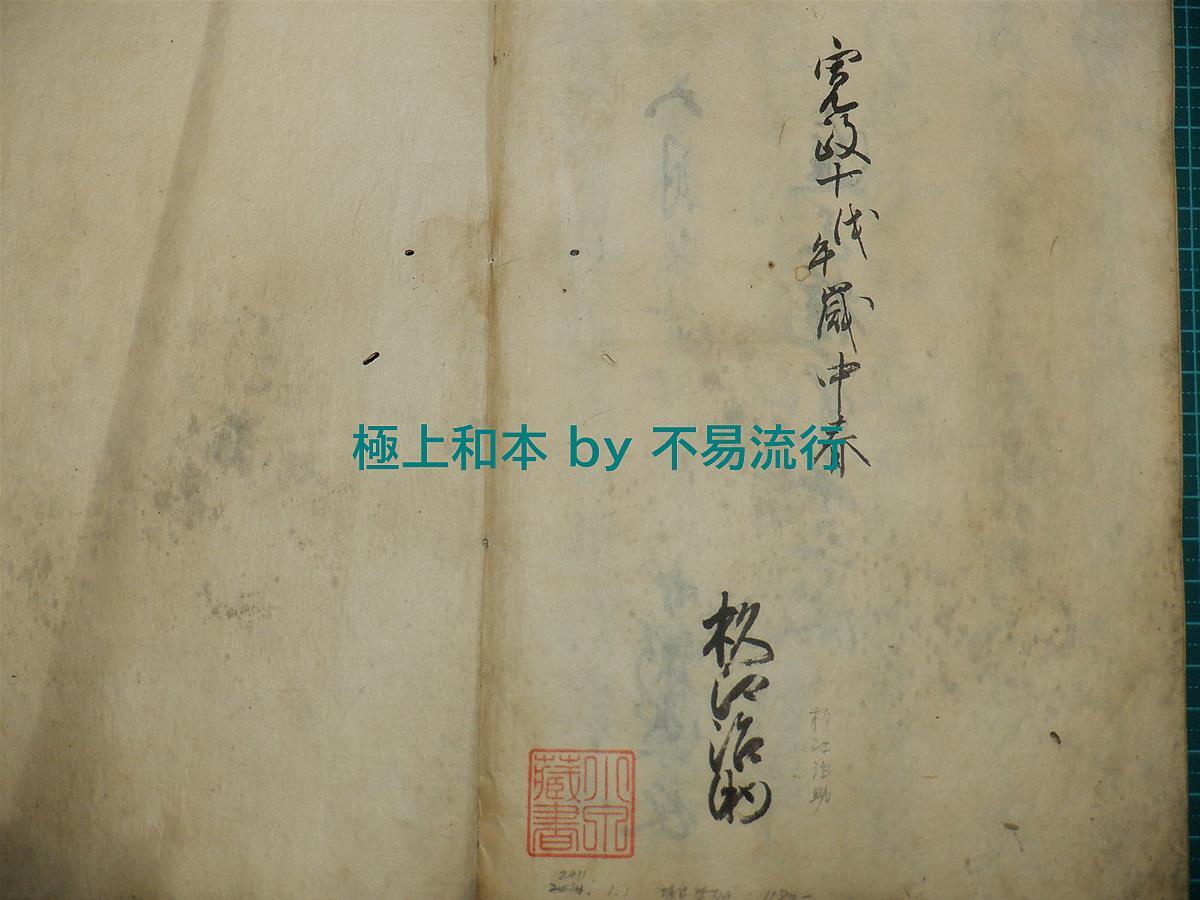 寛政十戊午歳中春
杉江治助
杉江治助
小泉蔵書
極上和本 by 不易流行
2011
1.1